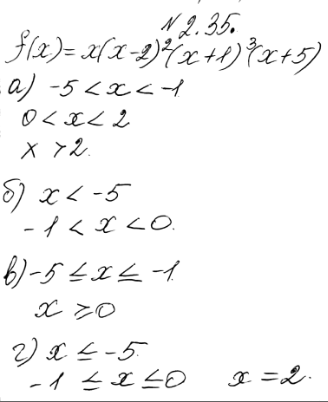 №2.35.
f(x)=x(x-2)²(x+1)³(x+5)
а) -5<x<-1
0<x<2
x>2.
б) x<-5
-1<x<0.
в) -5≤x≤-1
x≥0
г) x≤-5.
-1≤x≤0 x=2.